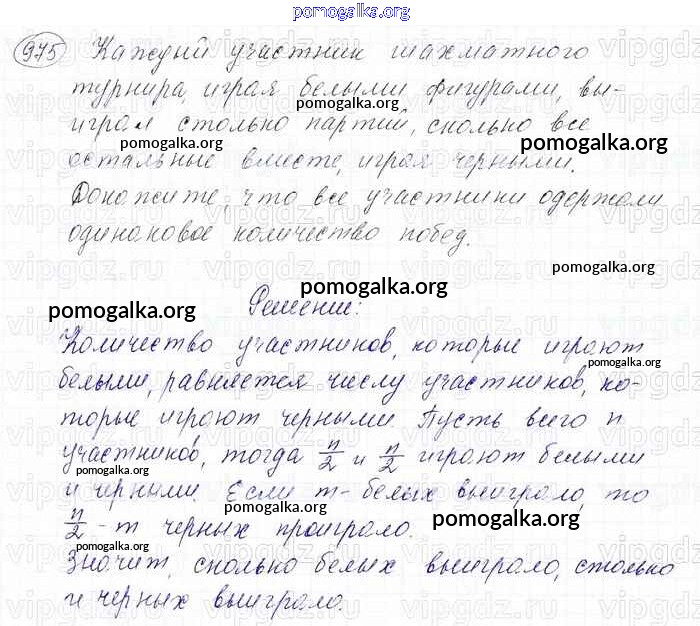 pomogalka.org
975 Каждый участник шахматного
турнира, играя белыми фигурами, вы-
pomogalka.org
играл столько партий, сколько все
pomogalka.org
остальные вместе, играя черными.
Докажите, что все участники одержали
одинаковое количество побед.
pomogalka.org
pomogalka.org
pomogalka.org
Решение:
Количество участников, которые играют
pomogalka.org
белыми, равняется числу участников, ко-
торые играют черными Пусть всего n
участников, тогда n/2 и n/2 играют белыми
pomogalka.org
и черными Если m - белых выиграло, то
n/2 - m черных проиграло.
pomogalka.org
pomogalka.org
Значит, сколько белых выиграло, столько
и черных выиграло.